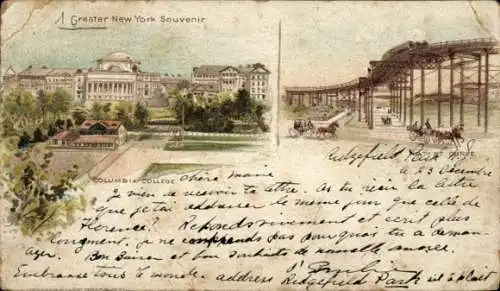 A Greater New York Souvenir
COLUMBIA COLLEGE
Ridgefield Park
le 23 Décembre
chère mame
Je vien de recevoir ta lettre. As tu reçu la lettre
que je t'ai adresser le même jour que celle de
Florence? Reponds vivement et ecrit plus
longment. je ne comprends pas pourquoi tu a demen-
ager. Bon baiser et bon souhaits de nouvelle année.
Embrasse tous le monde. address Ridgefield Park